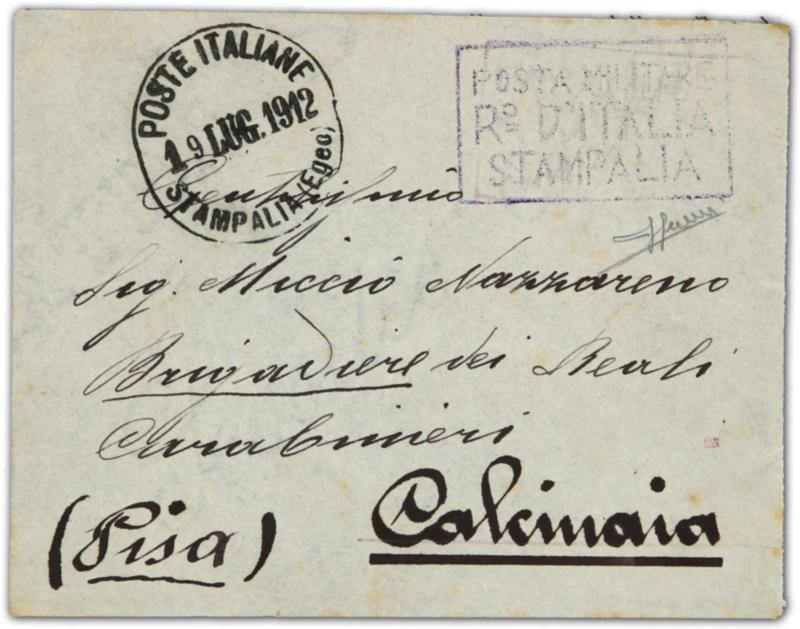 POSTE ITALIANE
19 LUG. 1912
STAMPALIA (Egeo)
POSTA MILITARE
Rº D'ITALIA
STAMPALIA
Sig. Miccio Nazzareno
Brigadiere dei Reali
Carabinieri
(Pisa) Calcinaia